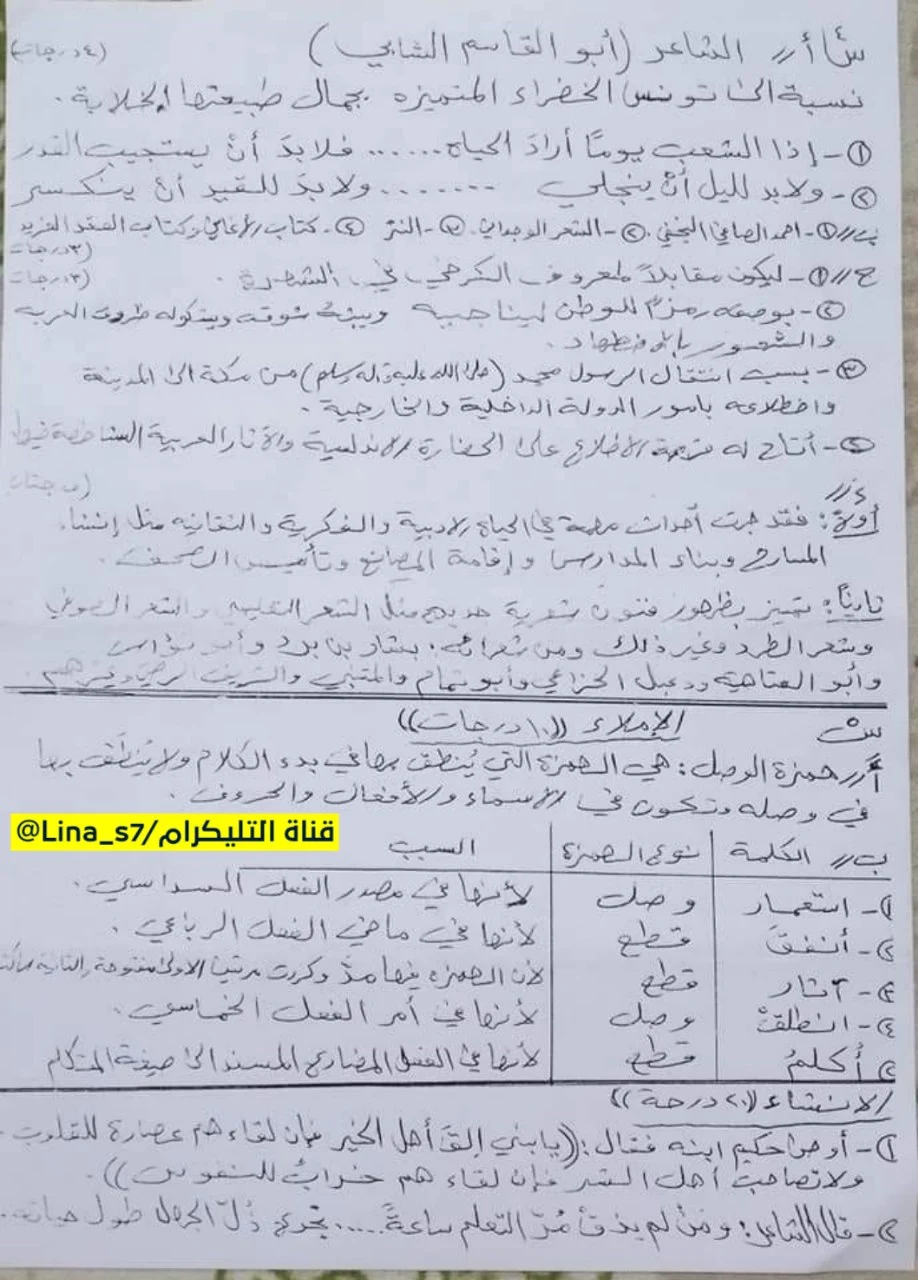 س٣ أ// الشاعر (أبو القاسم الشابي) (٤ درجات)
نسبة الى تونس الخضراء المتميزه بجمال طبيعتها الخلابة .
١- إذا الشعب يومًا أرادَ الحياة ...... فلا بدَ أنْ يستجيب القدر
٢- ولابد لليل أنْ ينجلي ........ ولا بدَ للقيد أنْ ينكسر
ب// ١- احمد الصافي النجفي . ٢- الشعر الوجداني . ٣- النثر ٤- كتاب الأغاني وكتاب العقد الفريد
(٣ درجات)
ج// ١- ليكون مقابلاً لمعروف الكرخي في الشهرة . (٣ درجات)
٢- بوصفه رمزًا للوطن ليناجيه ويبثه شوقه ويشكوله ظروف الغربه
والشعور بالاضطهاد .
٣- بسبب انتقال الرسول محمد (صلى الله عليه وآله وسلم) من مكة الى المدينة
واضطلاعه بامور الدولة الداخلية والخارجية .
٤- أتاح له فرصة الاطلاع على الحضارة الاندلسية والاثار العربية الشاخصة فيها
د//
أولاً: فقد جرت أحداث مهمة في الحياة الادبية والفكرية والثقافيه مثل إنشاء
المسارح وبناء المدارس وإقامة المصانع وتأسيس الصحف .
ثانيًا: تميز بظهور فنون شعرية جديده مثل الشعر التعليمي والشعر الصوفي
وشعر الطرد وغير ذلك ومن شعرائه: بشار بن برد وأبو نؤاس
وأبو العتاهية ودعبل الخزاعي وأبو تمام والمتنبي والشريف الرضي وغيرهم .
س الإملاء ((١٠ درجات))
أ// همزة الوصل: هي الهمزة التي يُنطق بها في بدء الكلام ولا يُنطَق بها
في وصله وتكون في الاسماء والأفعال والحروف .
قناة التليكرام/Lina_s7@
ب// الكلمة | نوع الهمزة | السبب
١- استعمار | وصل | لأنها في مصدر الفعل السداسي .
٢- أنفقَ | قطع | لأنها في ماضي الفعل الرباعي .
٣- آثار | قطع | لأن الهمزه فيها مدّ وكررت مرتين الاولى مفتوحة والثانية ساكنة
٤- انطلقْ | وصل | لأنها في أمر الفعل الخماسي .
٥- أُكلمُ | قطع | لأنها في الفعل المضارع المسند الى صيغة المتكلم
الانشاء ((٢٠ درجة))
١- أوصى حكيم ابنه فقال: ((يا بني إلقَ أهل الخير فإن لقاء هم عصارة للقلوب .
ولا تصاحبْ أهل الشر فإن لقاء هم خرابٌ للنفوس)).
٢- قال الشاعر: ومنْ لم يذقْ مُرّ التعلم ساعةً .... تجرع ذُلّ الجهل طول حياته .